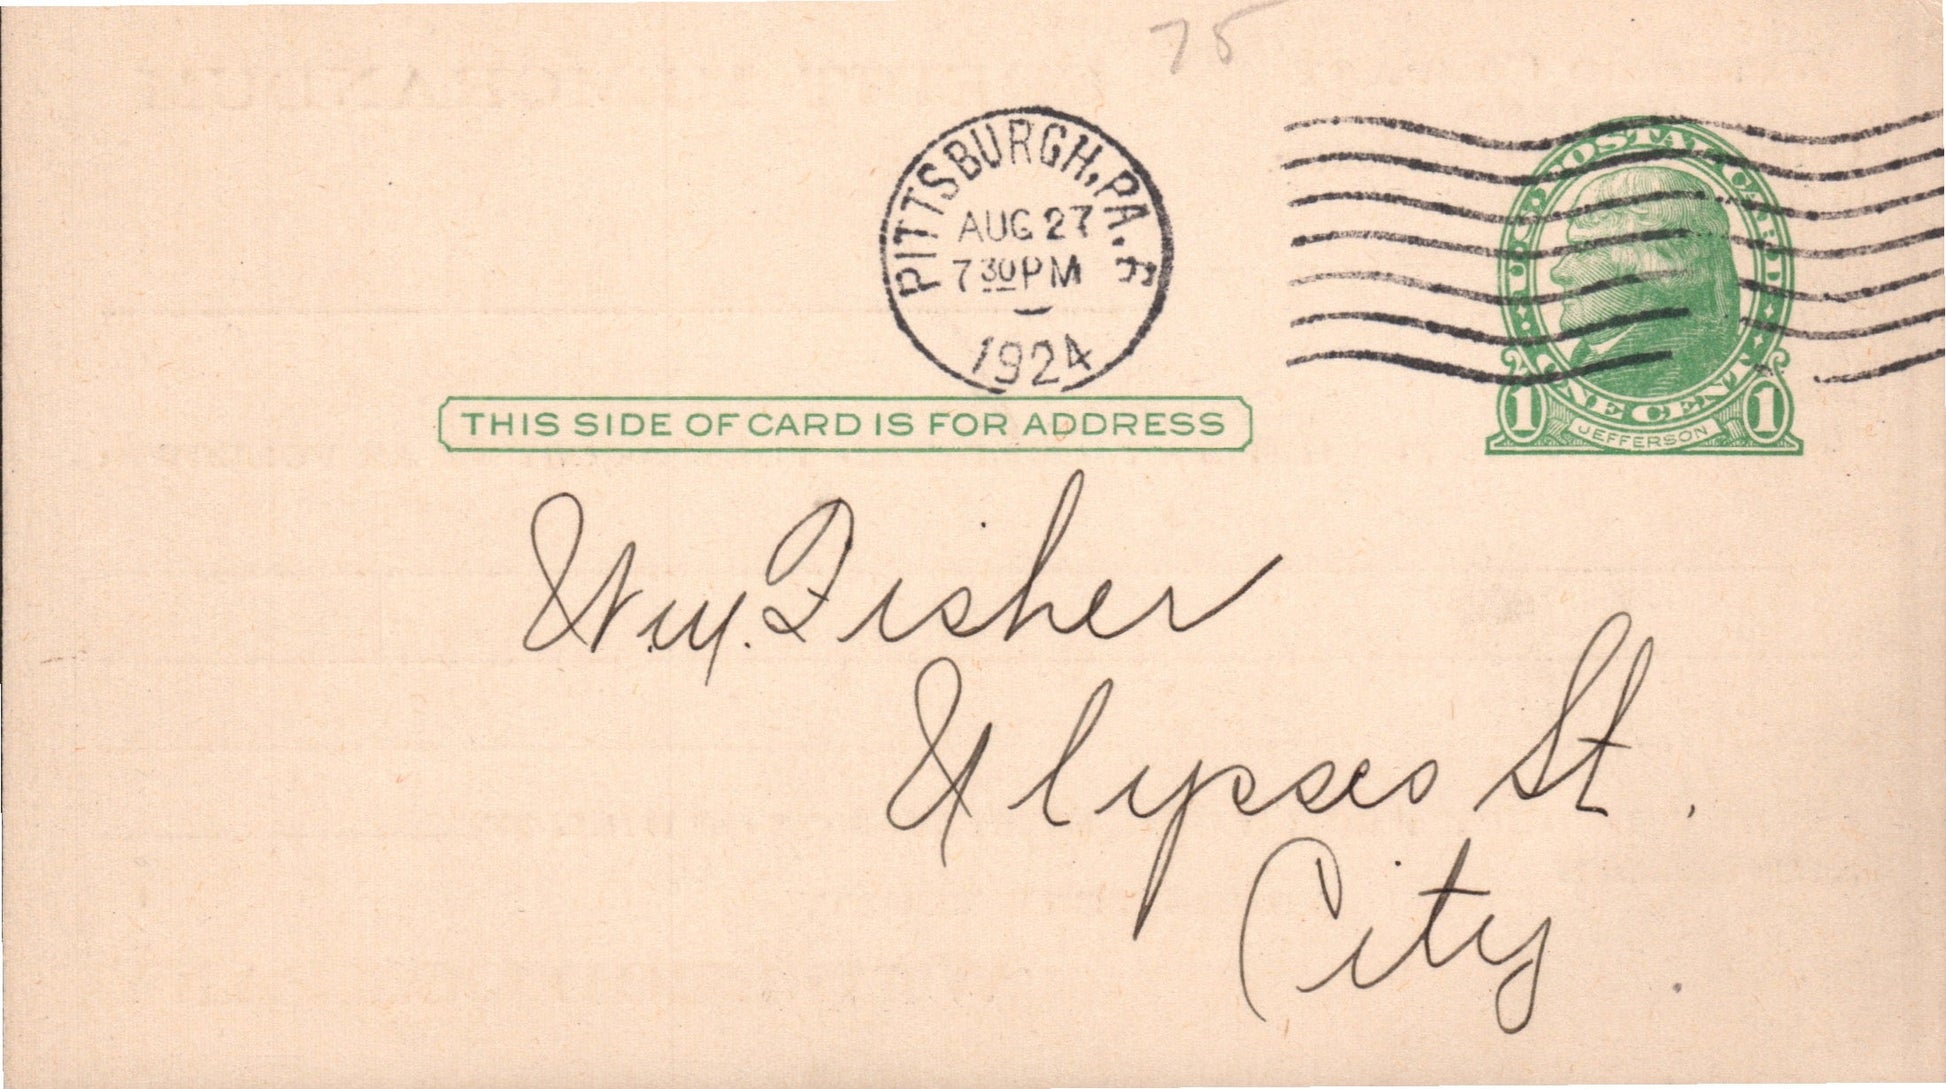 75
PITTSBURGH, PA.
AUG 27
7 30 PM
1924
U.S. POSTAL CARD
ONE CENT
1 JEFFERSON 1
THIS SIDE OF CARD IS FOR ADDRESS
Wm. Fisher
Ulysses St.
City